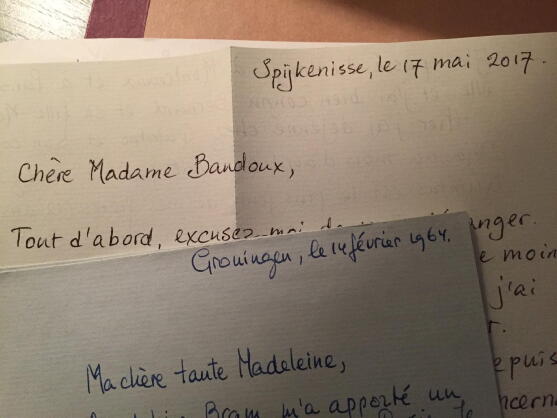 Spijkenisse, le 17 mai 2017.
Chère Madame Bandoux,
Tout d'abord, excusez-moi
e moin
j'ai
r.
epuis
ncern
Groningen, le 14 février 1964.
Ma chère tante Madeleine,
Bram m'a apporté un